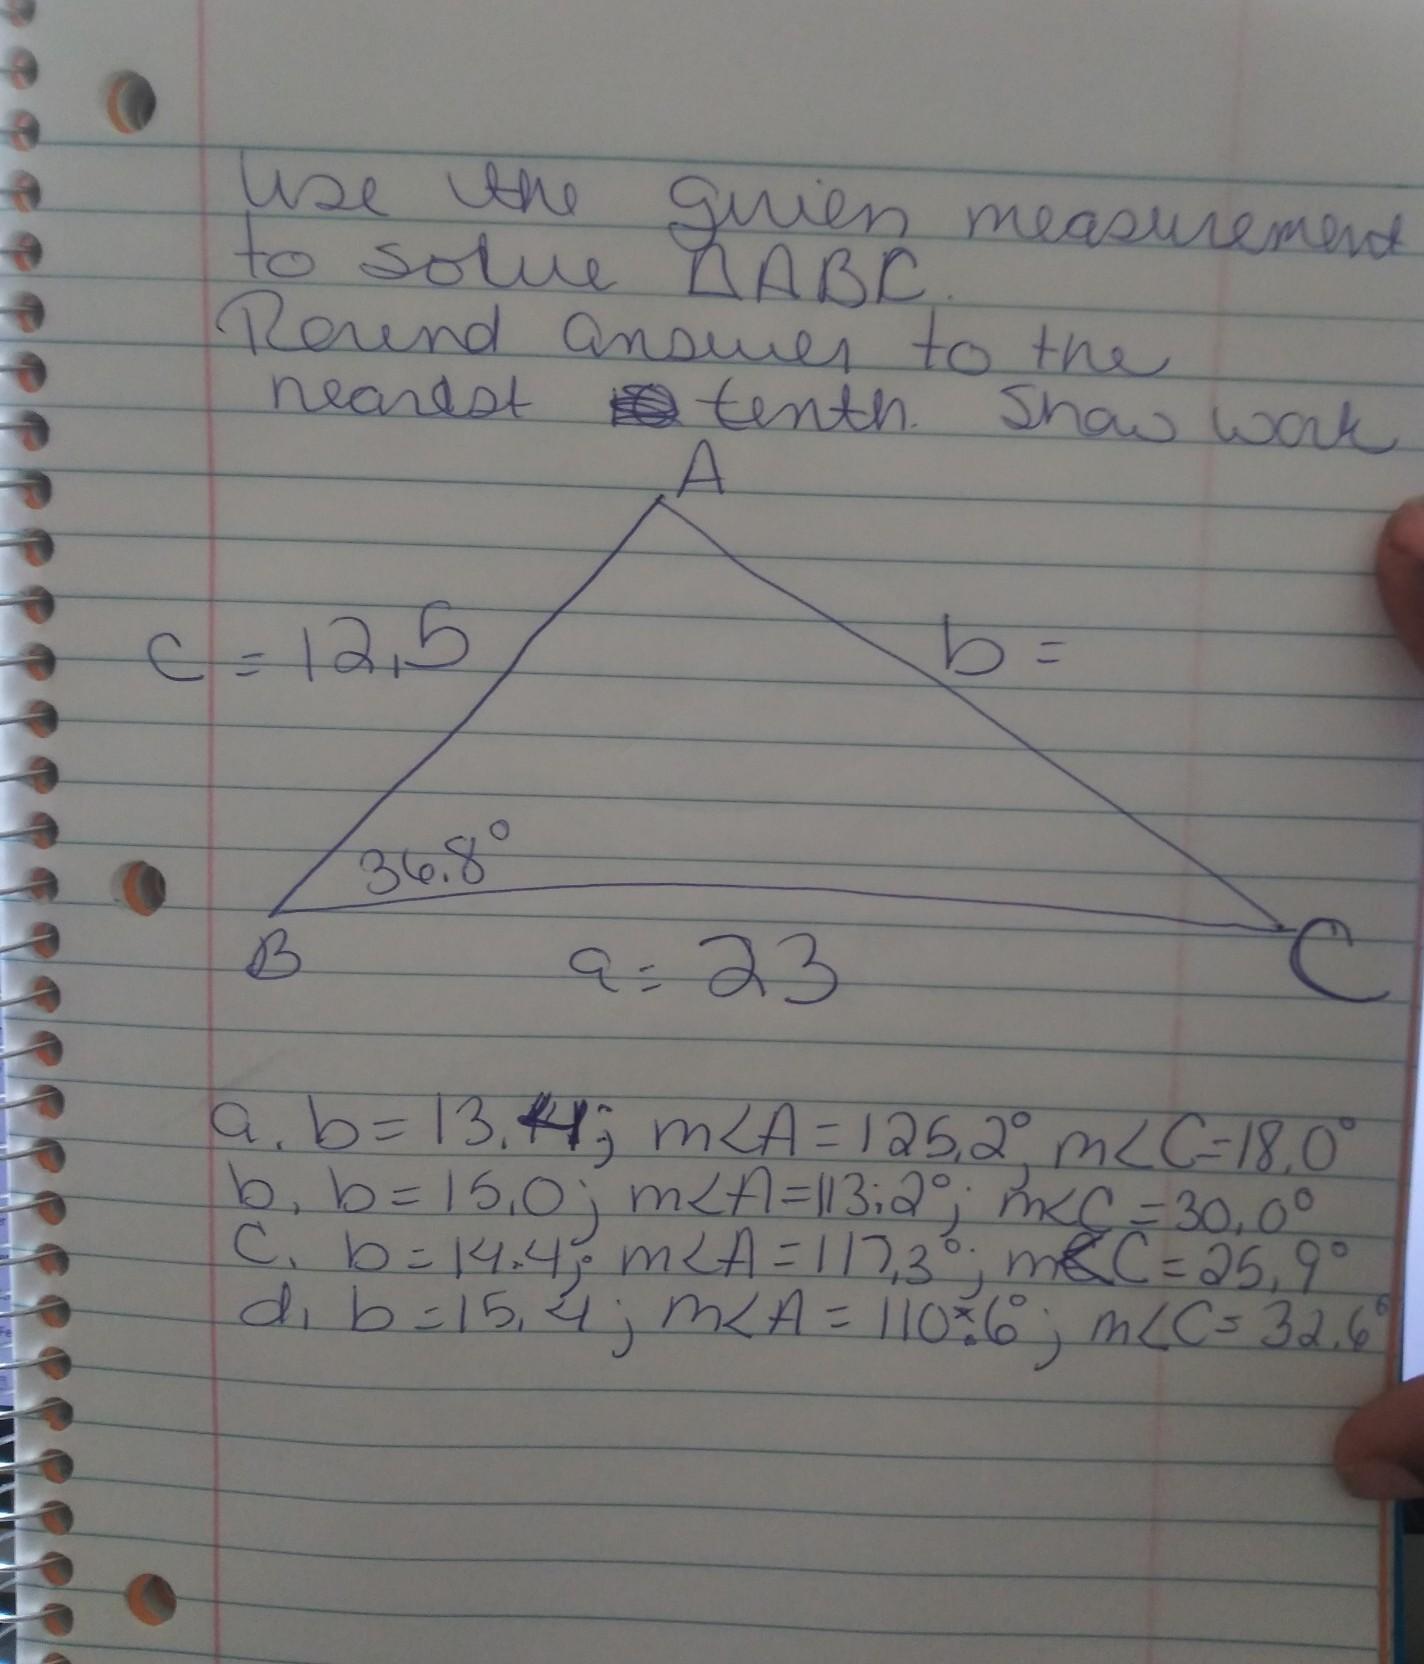 Use the given measurement
to solve △ABC.
Round answer to the
nearest tenth. Show work
A
c = 12.5
b =
36.8°
B
a = 23
C
a. b = 13.4; m<A = 125.2°, m<C = 18.0°
b. b = 15.0; m<A = 113.2°; m<C = 30.0°
c. b = 14.4; m<A = 117.3°; m<C = 25.9°
d. b = 15.4; m<A = 110.6°; m<C = 32.6°